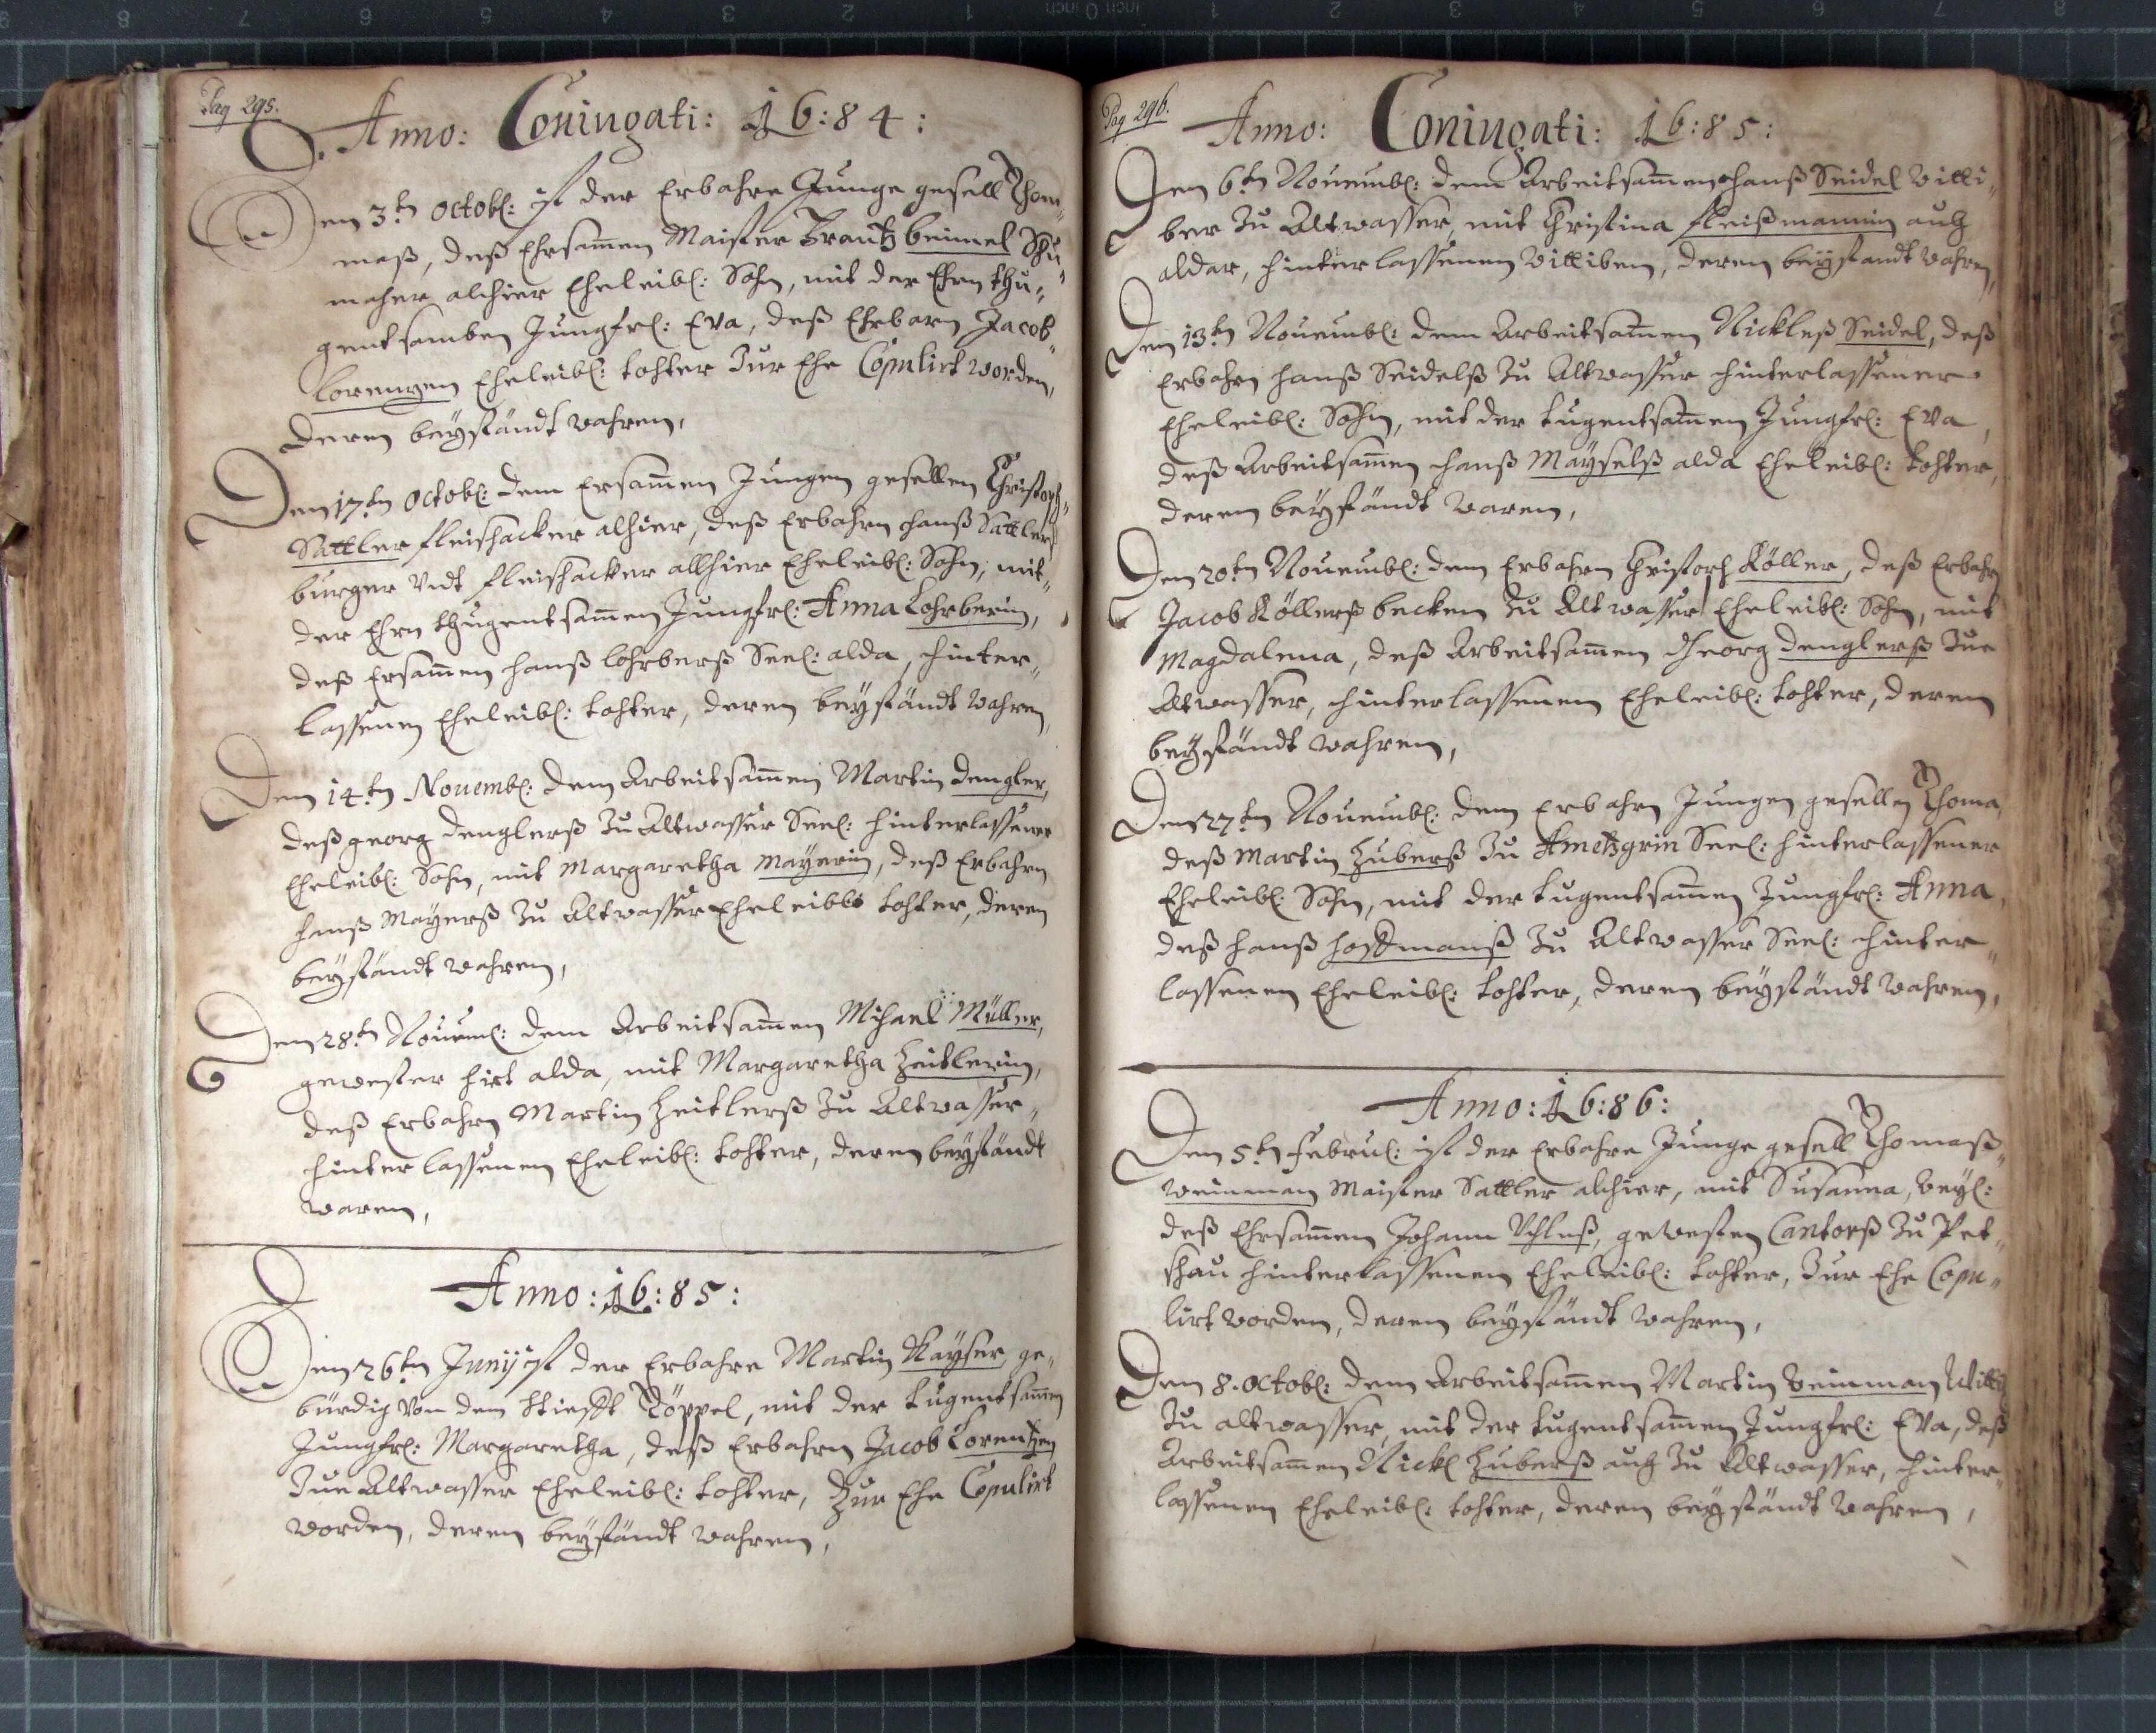 Pag 295.
Anno: Coniugati: 16:84:
Den 3tn Octobl: ist der Erbahre Junge gesell Thom-
maß, deß Ehrsamen Maister Frantz beimel Schu-
macher alhier Eheleibl: Sohn, mit der Ehrn thu-
gentsamben Jungfrl: Eva, deß Ehrbarn Jacob
Lorentzen Eheleibl: tochter zur Ehe Copulirt worden,
deren beyständt wahren,
Den 17tn Octobl: dem Ersamen Jungen gesellen Christoph
Sattler fleischacker alhier, deß Erbahrn hanß Sattlerß
burger vndt fleischacker allhier Eheleibl: Sohn, mit
der Ehrn thugentsamen Jungfrl: Anna Lohrberin,
deß Ersamen hanß lohrberß Seel: alda, hinter-
lassenen Eheleibl: tochter, deren beyständt wahren
Den 14tn Novembl: dem Arbeitsamen Martin dengler,
deß georg denglerß zu Altwasser Seel: hinterlassener
Eheleibl: Sohn, mit Margaretha Mayerin, deß Erbahrn
hanß Mayerß zu Altwasser Eheleible tochter, deren
beyständt wahren,
Den 28tn Noveml: dem Arbeitsamen Michael Müller,
gewester hirt alda, mit Margaretha Zeitlerin,
deß Erbahrn Martin Zeitlerß zu Altwasser
hinterlassenen Eheleibl: tochter, deren beyständt
waren,
Anno: 16:85:
Den 26tn Junij ist der Erbahre Martin Kayser, ge-
bürdig von dem Stiefft Töppel, mit der tugentsamen
Jungfrl: Margaretha, deß Erbahrn Jacob Lorentzen
Zue Altwasser Eheleibl: tochter, Zur Ehe Copulirt
worden, deren beyständt wahren,
Pag 296.
Anno: Coniugati: 16:85:
Den 6tn Novembl: dem Arbeitsamen hanß Seidel Witti-
ber zu Altwasser, mit Christina fleißmannin auch
aldar, hinterlassenen Wittiben, deren beystandt wahren
Den 13tn Novembl: dem Arbeitsamen Nickleß Seidel, deß
Erbahrn hanß Seidelß zu Altwasser hinterlassener
Eheleibl: Sohn, mit der tugentsamen Jungfrl: Eva,
deß Arbeitsamen hanß Mayselß alda Eheleibl: tochter,
deren beyständt waren,
Den 20tn Novembl: dem Erbahrn Christoph Köller, deß Erbahrn
Jacob Köllerß becken zu Altwasser Eheleibl: Sohn, mit
Magdalena, deß Arbeitsamen Georg denglerß Zue
Altwasser, hinterlassenen Eheleibl: tochter, deren
beyständt wahren,
Den 27tn Novembl: dem Erbahrn Jungen gesellen Thoma
deß Martin Zuberß zu Ametzgrin Seel: hinterlassener
Eheleibl: Sohn, mit der tugentsamen Jungfrl: Anna,
deß hanß hoffmanß zu Altwasser Seel: hinter-
lassenen Eheleibl: tochter, deren beyständt wahren,
Anno: 16:86:
Den 5tn Februl: ist der Erbahre Junge gesell Thomaß
weinman Maister Sattler alhier, mit Susanna, weyl:
deß Ehrsamen Johann Uhluß, gewesten Cantorß zu Pet-
schau hinterlassenen Eheleibl: tochter, zur Ehe Copu-
lirt worden, deren beyständt wahren,
Den 8. Octobl: dem Arbeitsamen Martin Weinman Witti
zu altwasser, mit der tugentsamen Jungfrl: Eva, deß
Arbeitsamen Nickl Zuberß auch zu Altwasser, hinter-
lassenen Eheleibl: tochter, deren beyständt wahren,